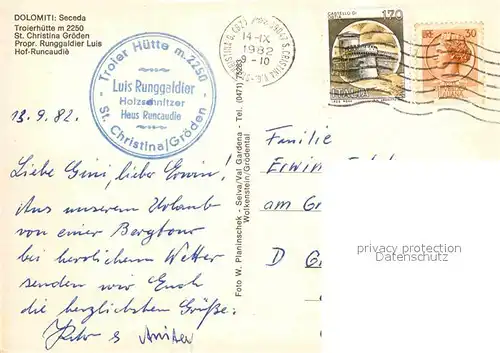 DOLOMITI: Seceda
Troierhütte m 2250
St. Christina Gröden
Propr. Runggaldier Luis
Hof-Runcaudiè
Troier Hütte m. 2250
Luis Runggaldier
Holzschnitzer
Haus Runcaudie
St. Christina/Gröden
13.9.82.
Liebe Gini, lieber Erwin!
Aus unserem Urlaub
von einer Bergtour
bei herrlichem Wetter
senden wir Euch
die herzlichsten Grüße.
Foto W. Planinschek - Selva/Val Gardena - Tel. (0471) 75283
Wolkenstein/Grödental
14-IX
1982
9-10
CASTELLO DI
170
ITALIA
30
Familie
Erwin
am G
D G
privacy protection
Datenschutz